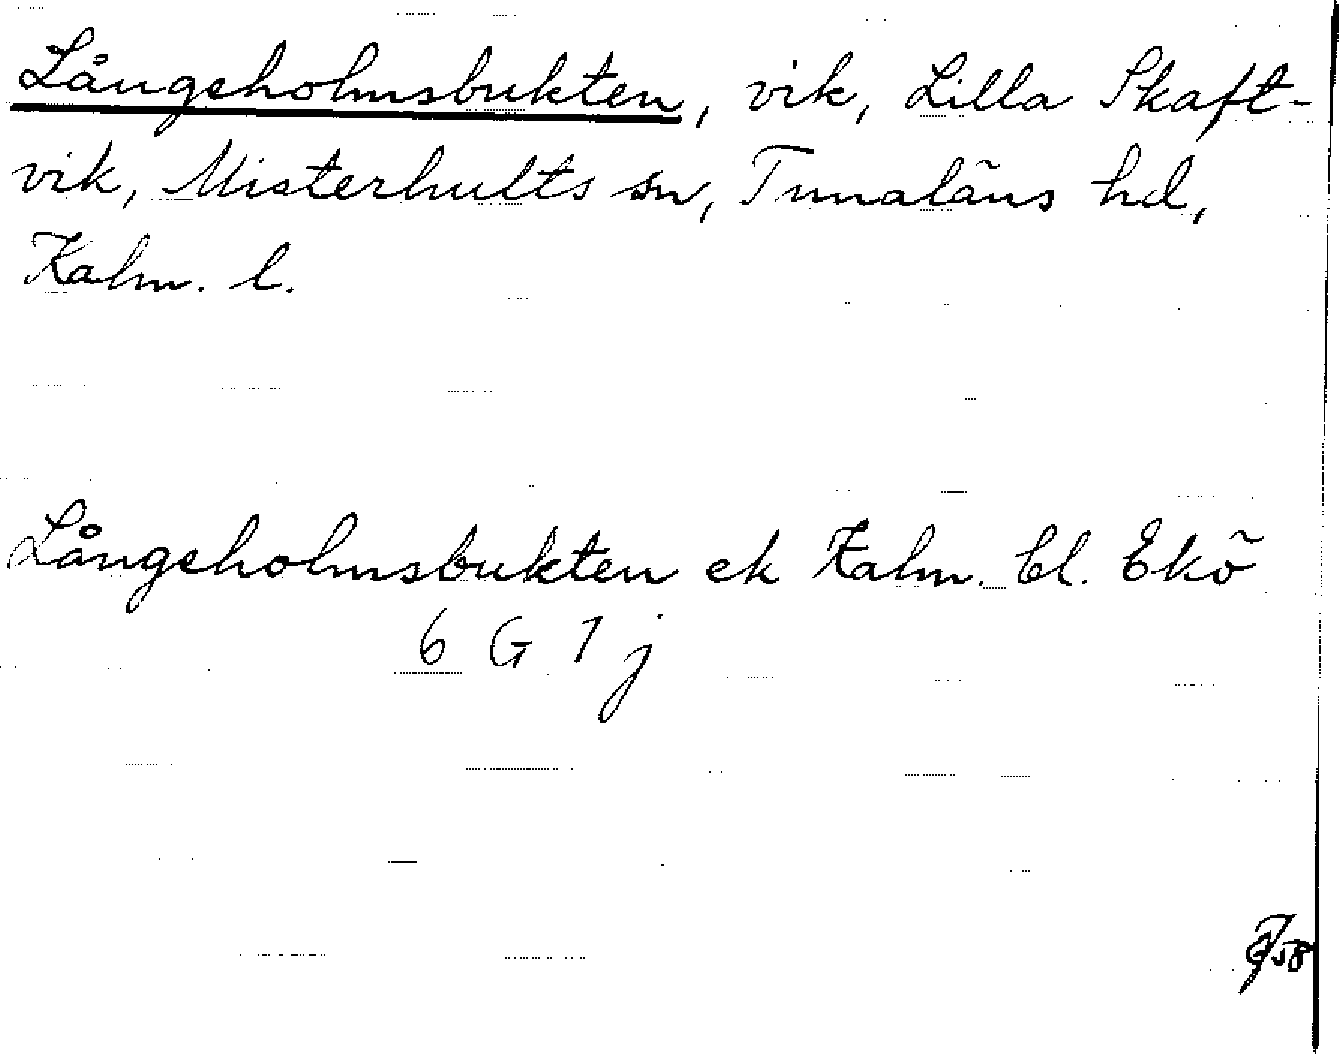 Långeholmsbukten, vik, Lilla Skaft-
vik, Misterhults sn, Tunaläns hd,
Kalm. l.
Långeholmsbukten ek Kalm. bl. Ekö
6 G 7 j